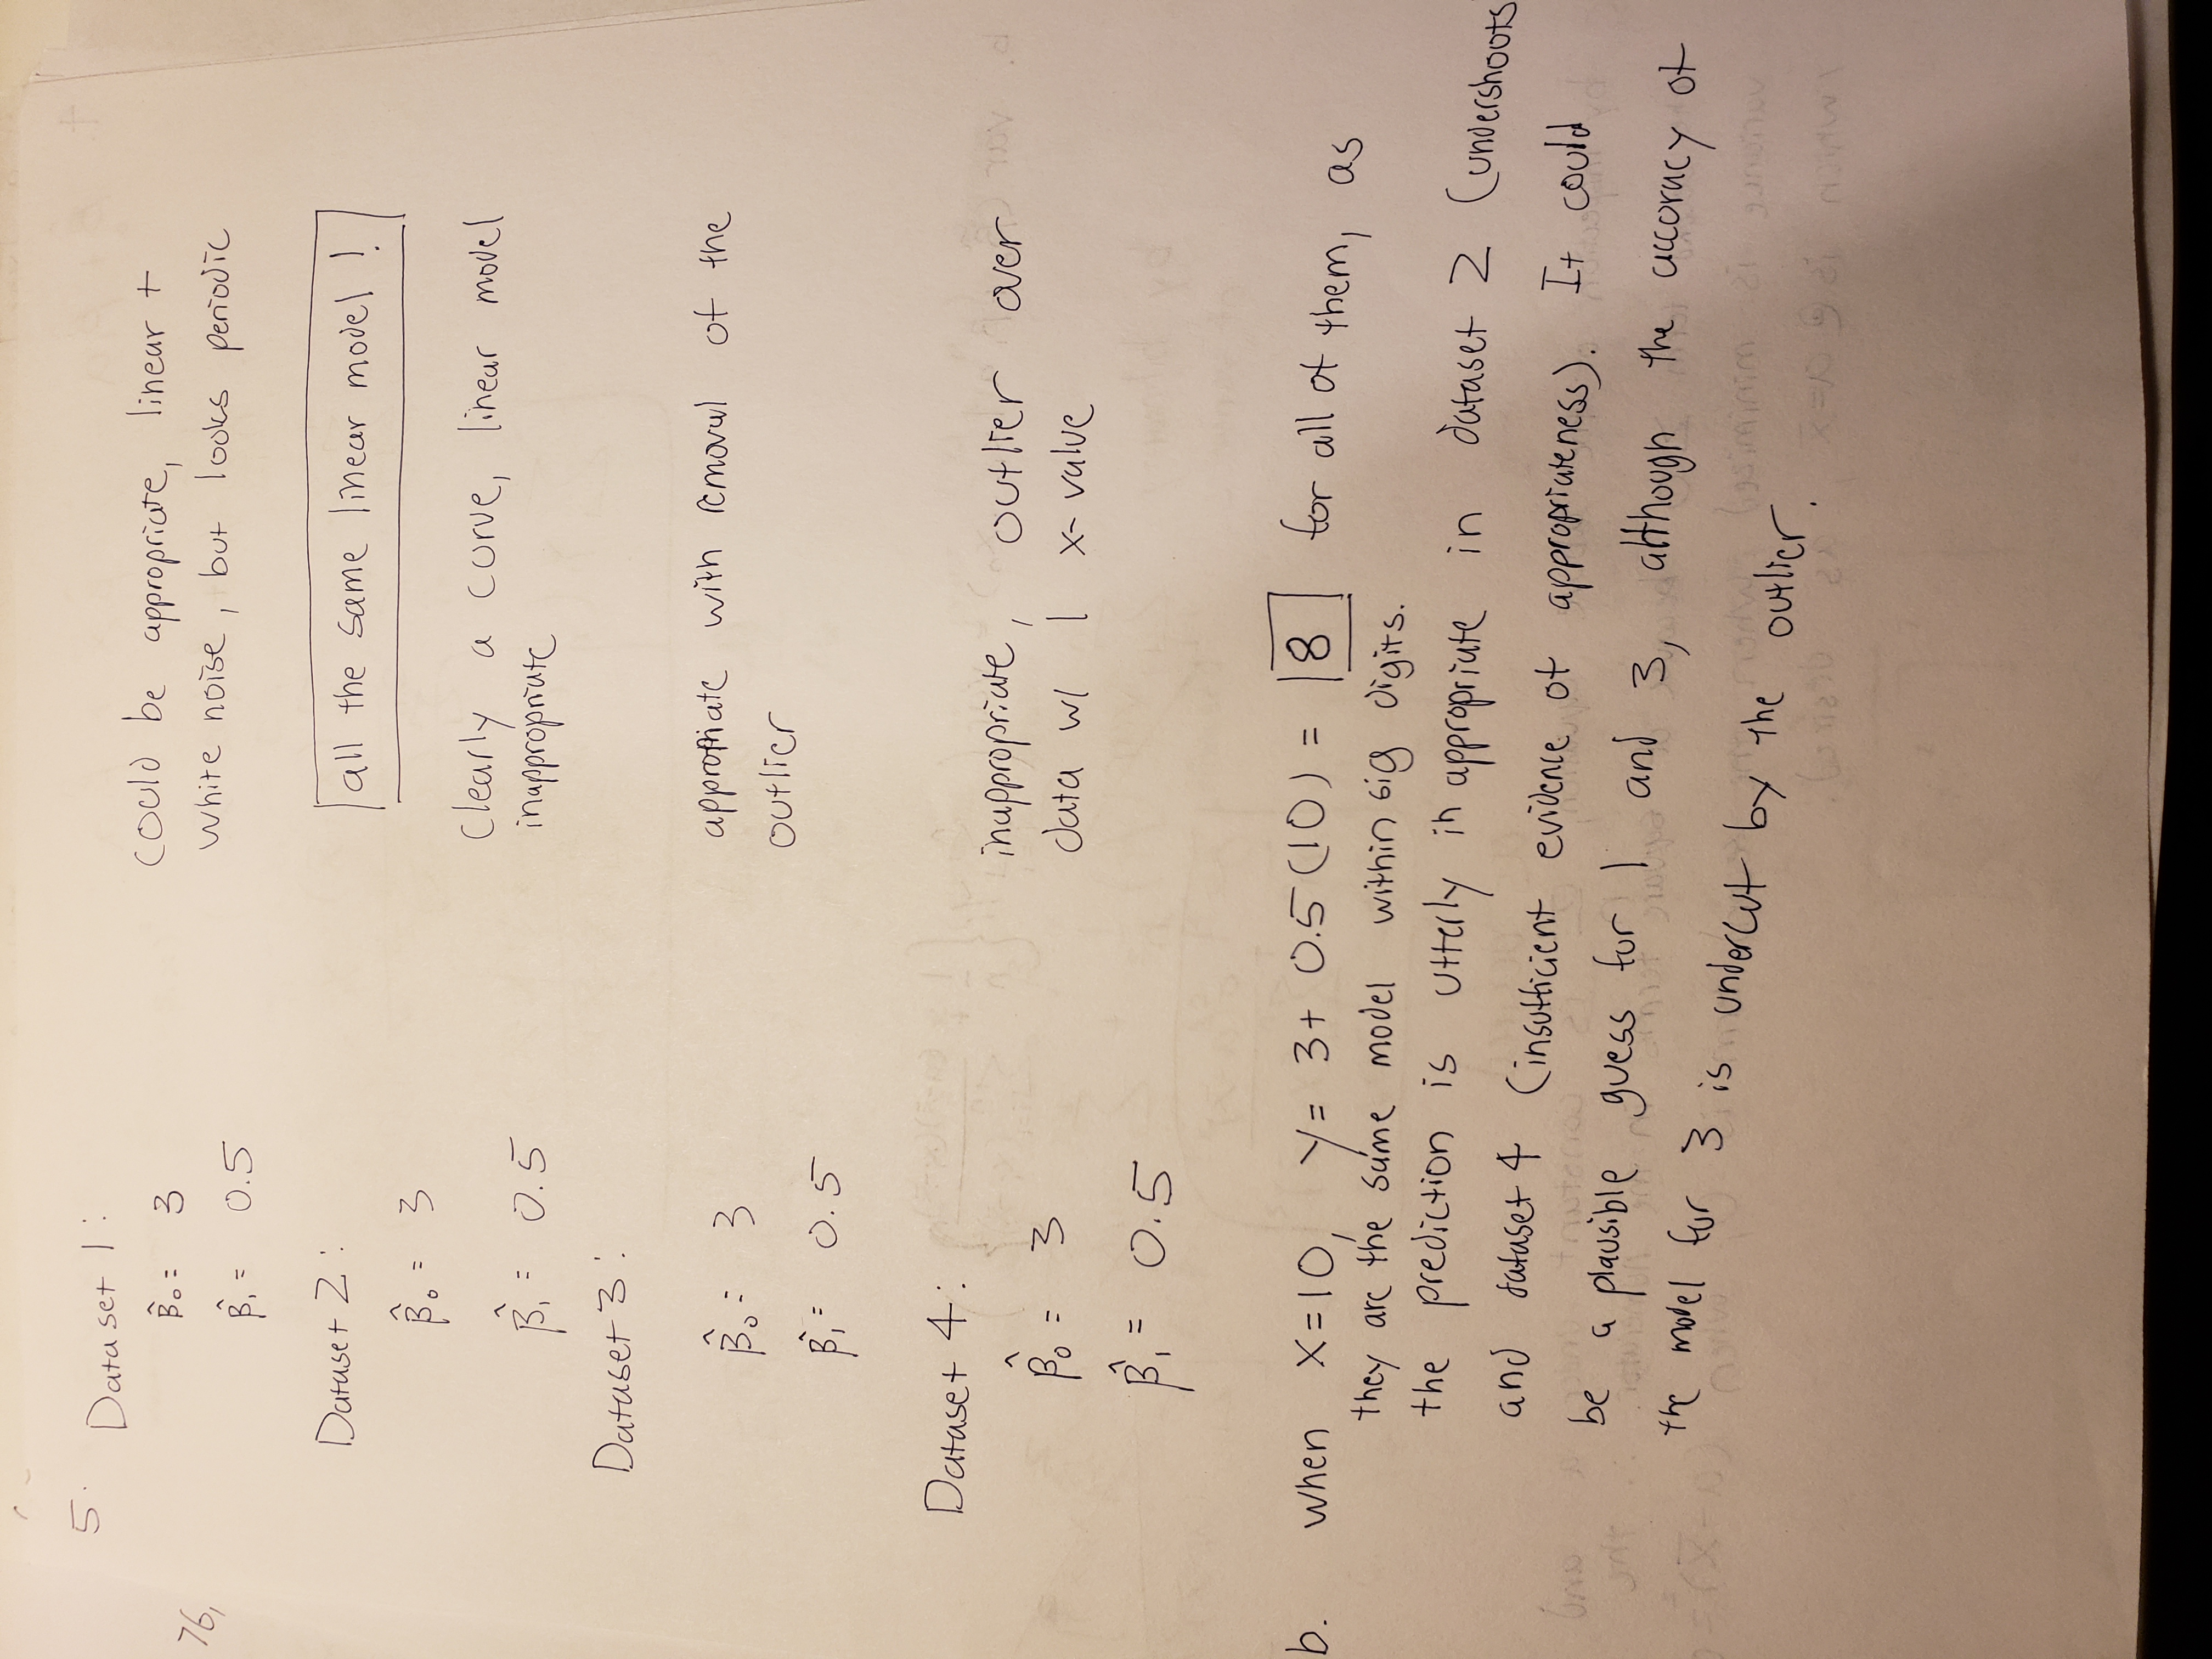 5.
Dataset 1:
β̂₀ = 3
could be appropriate, linear +
76,
white noise, but looks periodic
β̂₁ = 0.5
Dataset 2:
all the same linear model!
β̂₀ = 3
Clearly a curve, linear model
β̂₁ = 0.5
inappropriate
Dataset 3:
β̂₀ = 3
appropriate with removal of the
outlier
β̂₁ = 0.5
Dataset 4:
inappropriate, outlier over
β̂₀ = 3
data w/ 1 x-value
β̂₁ = 0.5
b. when x=10, y= 3+ 0.5(10) = 8 for all of them, as
they are the same model within sig digits.
the prediction is utterly inappropriate in dataset 2 (undershoots
and dataset 4 (insufficient evidence of appropriateness). It could
be a plausible guess for 1 and 3, although the accuracy of
the model for 3 is undercut by the outlier.